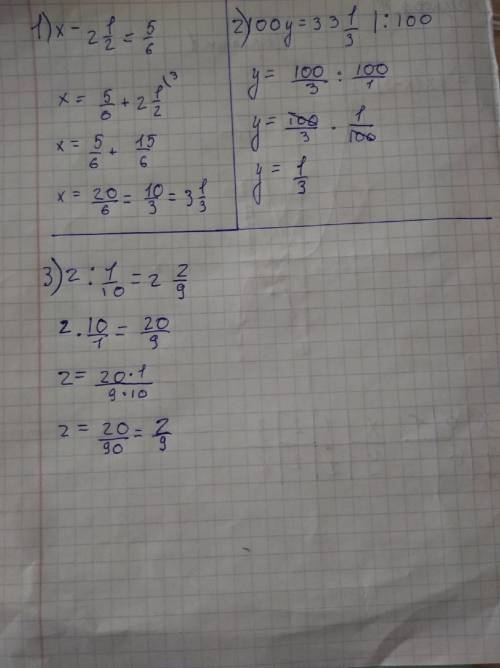 1) x - 2 1/2 = 5/6
x = 5/6 + 2 1/2 (3
x = 5/6 + 15/6
x = 20/6 = 10/3 = 3 1/3
2) 100y = 33 1/3 |: 100
y = 100/3 : 100/1
y = 100/3 · 1/100
y = 1/3
3) z : 1/10 = 2 2/9
z · 10/1 = 20/9
z = 20·1/9·10
z = 20/90 = 2/9